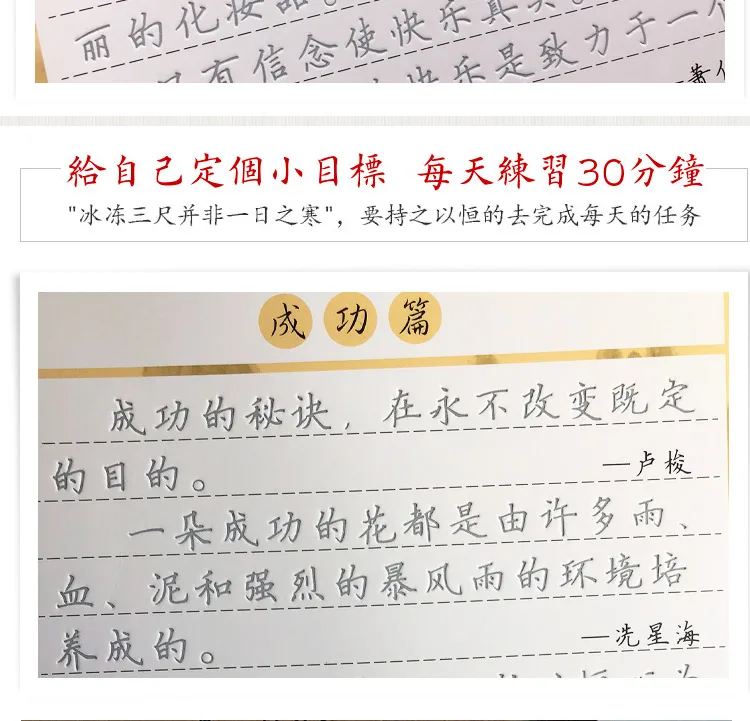 丽的化妆品。
有信念使快乐真实。
快乐是致力于一个
給自己定個小目標 每天練習30分鐘
"冰冻三尺并非一日之寒"，要持之以恒的去完成每天的任务
成功篇
成功的秘诀，在永不改变既定
的目的。
—卢梭
一朵成功的花都是由许多雨、
血、泥和强烈的暴风雨的环境培
养成的。
—冼星海